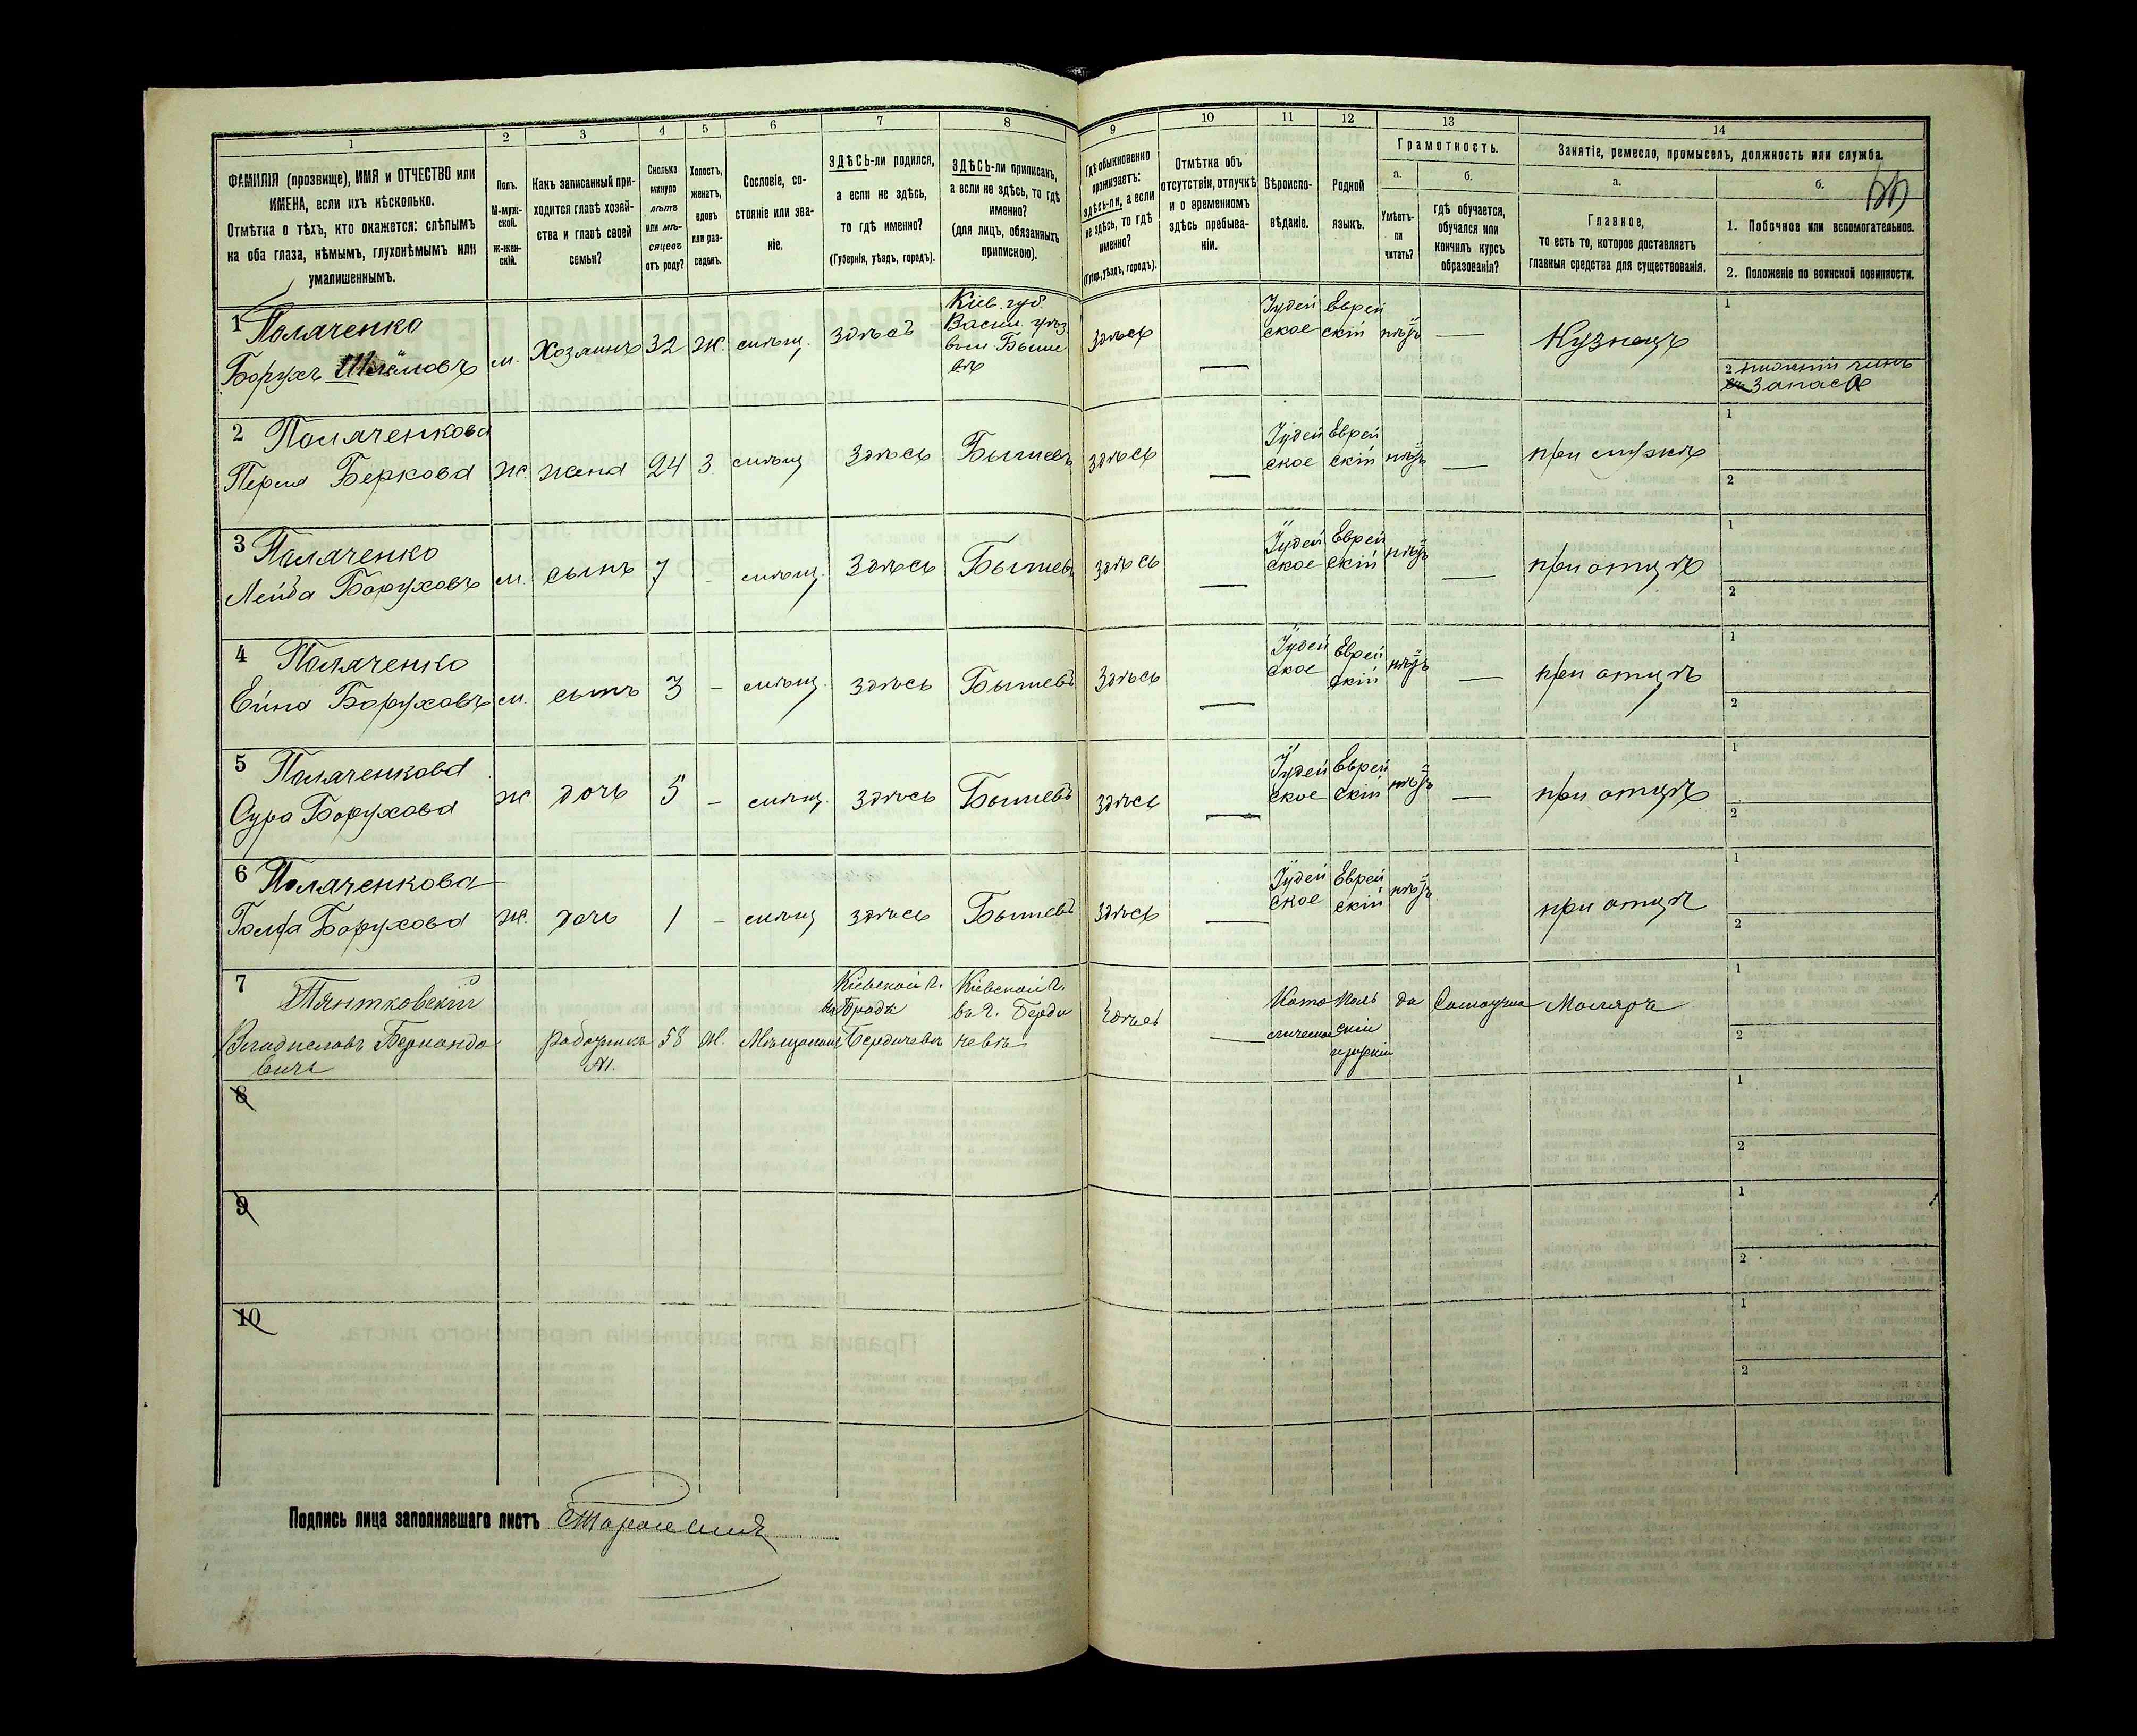 1 2 3 4 5 6 7 8 9 10 11 12 13 14
ФАМИЛІЯ (прозвище), ИМЯ и ОТЧЕСТВО или
ИМЕНА, если ихъ нѣсколько.
Отмѣтка о тѣхъ, кто окажется: слѣпымъ
на оба глаза, нѣмымъ, глухонѣмымъ или
умалишеннымъ.
Полъ.
М-муж-
ской.
Ж-жен-
скій.
Какъ записанный при-
ходится главѣ хозяй-
ства и главѣ своей
семьи?
Сколько
минуло
лѣтъ
или мѣ-
сяцевъ
отъ роду?
Холостъ,
женатъ,
вдовъ
или раз-
веденъ.
Сословіе, со-
стояніе или зва-
ніе.
ЗДѢСЬ-ли родился,
а если не здѣсь,
то гдѣ именно?
(Губернія, уѣздъ, городъ).
ЗДѢСЬ-ли приписанъ,
а если не здѣсь, то гдѣ
именно?
(для лицъ, обязанныхъ
припискою).
Гдѣ обыкновенно
проживаетъ:
здѣсь-ли, а если
не здѣсь, то гдѣ
именно?
(Губер., уѣздъ, городъ).
Отмѣтка объ
отсутствіи, отлучкѣ
и о временномъ
здѣсь пребыва-
ніи.
Вѣроиспо-
вѣданіе.
Родной
языкъ.
Грамотность.
а.
Умѣетъ-
ли
читать?
б.
гдѣ обучается,
обучался или
кончилъ курсъ
образованія?
Занятіе, ремесло, промыселъ, должность или служба.
а.
Главное,
то есть то, которое доставляетъ
главныя средства для существованія.
б.
1. Побочное или вспомогательное.
2. Положеніе по воинской повинности.
1 Поляченко
Борухъ Шлёмовъ м. Хозяинъ 32 Ж. мѣщ. здѣсь
Кіев. губ.
Васил. уѣз.
Быше
вѣ
здѣсь — Іудей
ское Еврей
скій нѣтъ — Кузнецъ
1
2 нижній чинъ
запаса
2 Поляченкова
Перля Беркова Ж. жена 24 З. мѣщ здѣсь Бышевъ здѣсь — Іудей
ское Еврей
скій нѣтъ — при мужѣ
1
2
3 Поляченко
Лейба Боруховъ м. сынъ 7 - мѣщ. здѣсь Бышевъ здѣсь — Іудей
ское Еврей
скій нѣтъ — при отцѣ
1
2
4 Поляченко
Боруховъ м. сынъ 3 - мѣщ. здѣсь Бышевъ здѣсь — Іудей
ское Еврей
скій нѣтъ — при отцѣ
1
2
5 Поляченкова
Сура Борухова Ж дочь 5 - мѣщ. здѣсь Бышевъ здѣсь — Іудей
ское Еврей
скій нѣтъ — при отцѣ
1
2
6 Поляченкова
Борухова Ж. дочь 1 - мѣщ здѣсь Бышевъ здѣсь — Іудей
ское Еврей
скій нѣтъ при отцѣ
1
2
7 Пянтковскій
Владиславъ Бернардо
вичъ
работникъ
М.
58 Ж. Мѣщанинъ
Кіевской г.
Бердичевск
Кіевской г.
въ г. Берди
чевѣ
Здѣсь — Като
лическое Поль
скій
да Самоучка Маляръ
1
2
8
1
2
9
1
2
10
1
2
Подпись лица заполнявшаго листъ